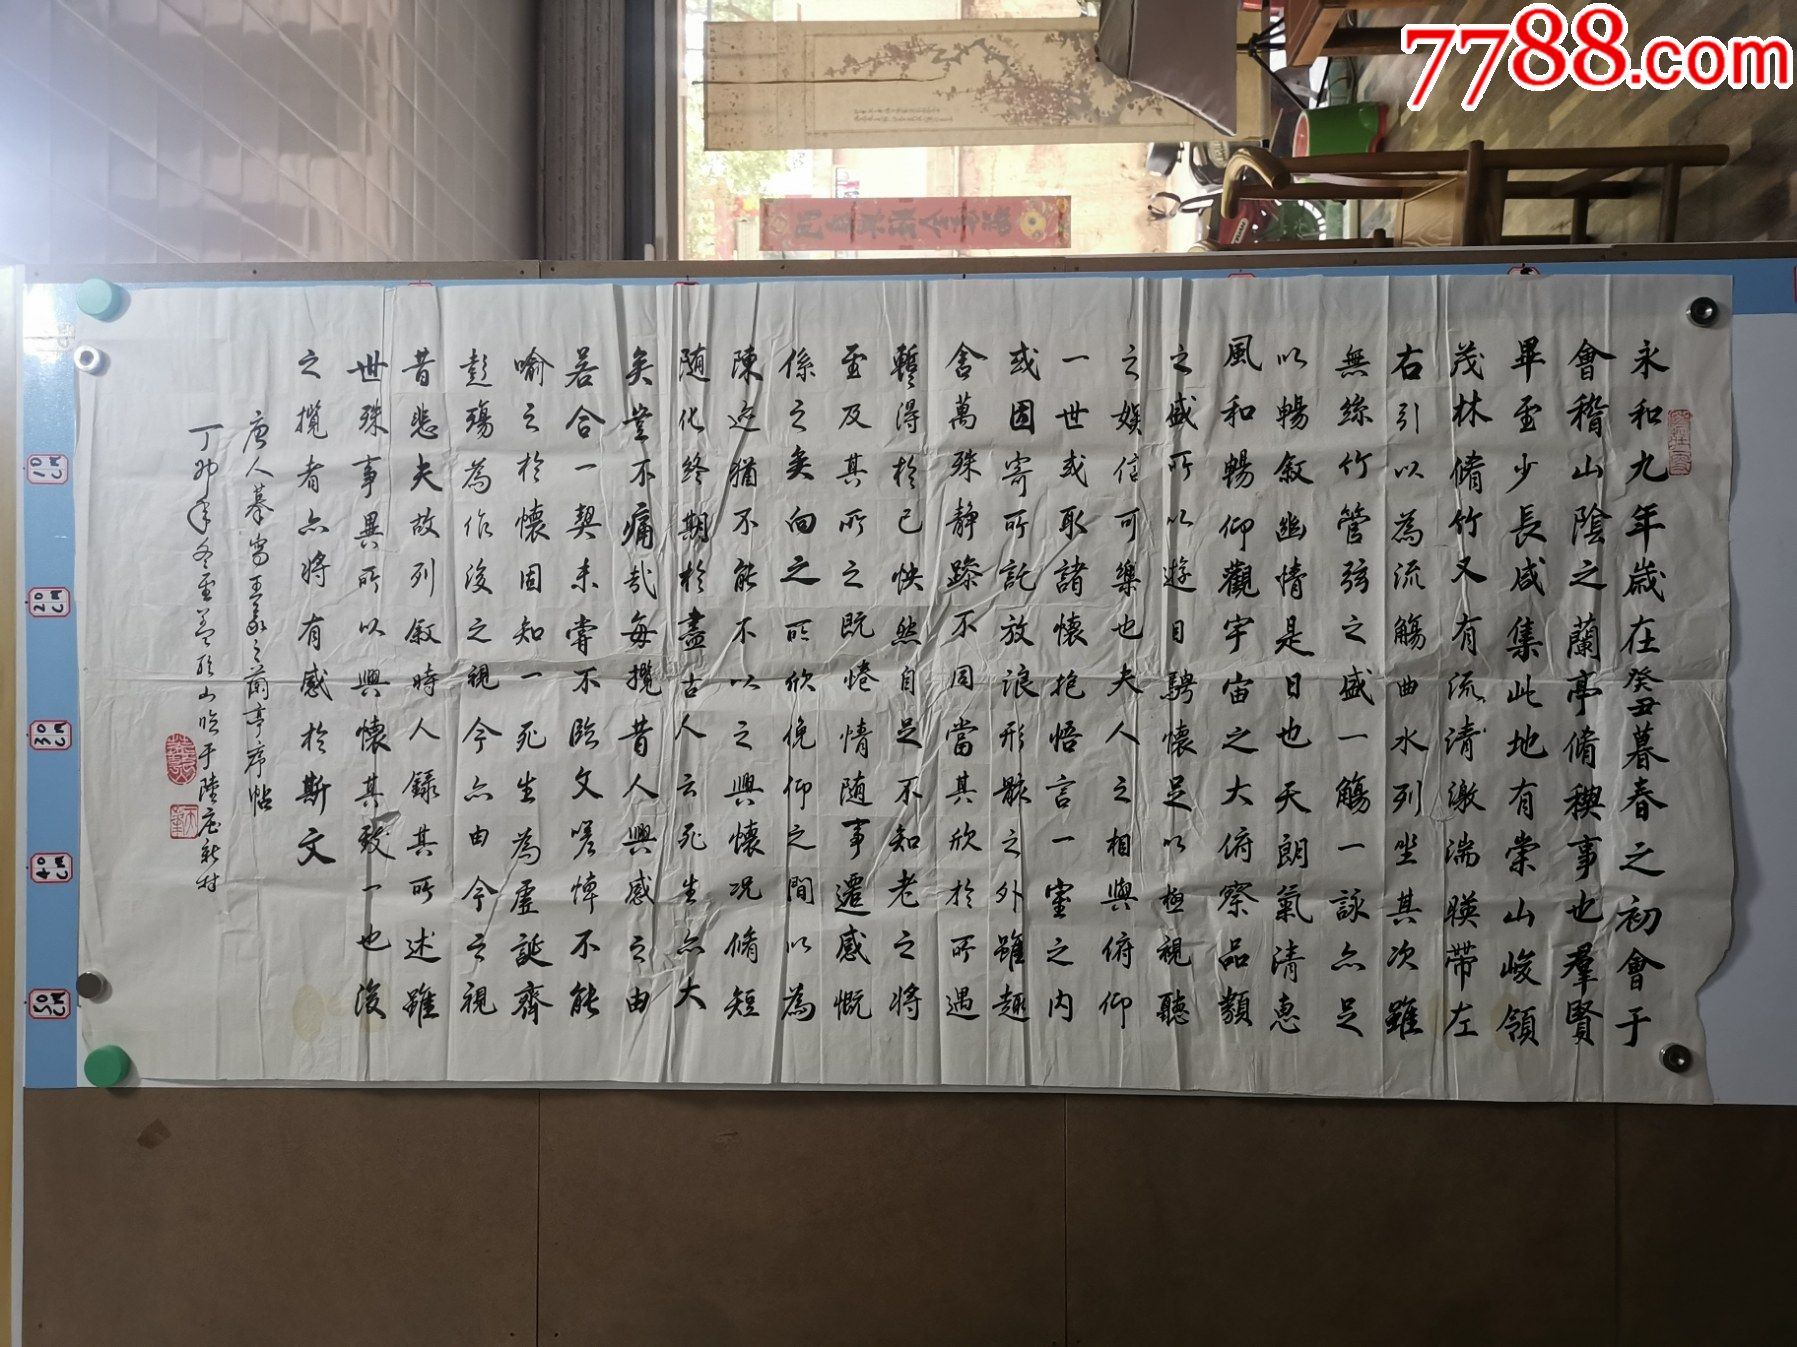 7788.com
永和九年歲在癸丑暮春之初會于
會稽山陰之蘭亭脩稧事也羣賢
畢至少長咸集此地有崇山峻領
茂林脩竹又有流清激湍暎帶左
右引以為流觴曲水列坐其次雖
無絲竹管弦之盛一觴一詠亦足
以暢敘幽情是日也天朗氣清惠
風和暢仰觀宇宙之大俯察品類
之盛所以遊目騁懷足以極視聽
之娛信可樂也夫人之相與俯仰
一世或取諸懷抱悟言一室之內
或因寄所託放浪形骸之外雖趣
舍萬殊靜躁不同當其欣於所遇
暫得於己怏然自足不知老之將
至及其所之既惓情随事遷感慨
係之矣向之所欣俛仰之間以為
陳迹猶不能不以之興懷況脩短
随化終期於盡古人云死生亦大
矣豈不痛哉每攬昔人興感之由
若合一契未嘗不臨文嗟悼不能
喻之於懷固知一死生為虛誕齊
彭殤為作後之視今亦由今之視
昔悲夫故列敘時人錄其所述雖
世殊事異所以興懷其致一也後
之攬者亦將有感於斯文
唐人摹寫王羲之蘭亭序帖
丁卯年冬至山臨于陸庄新村
10CM
20CM
30CM
40CM
50CM